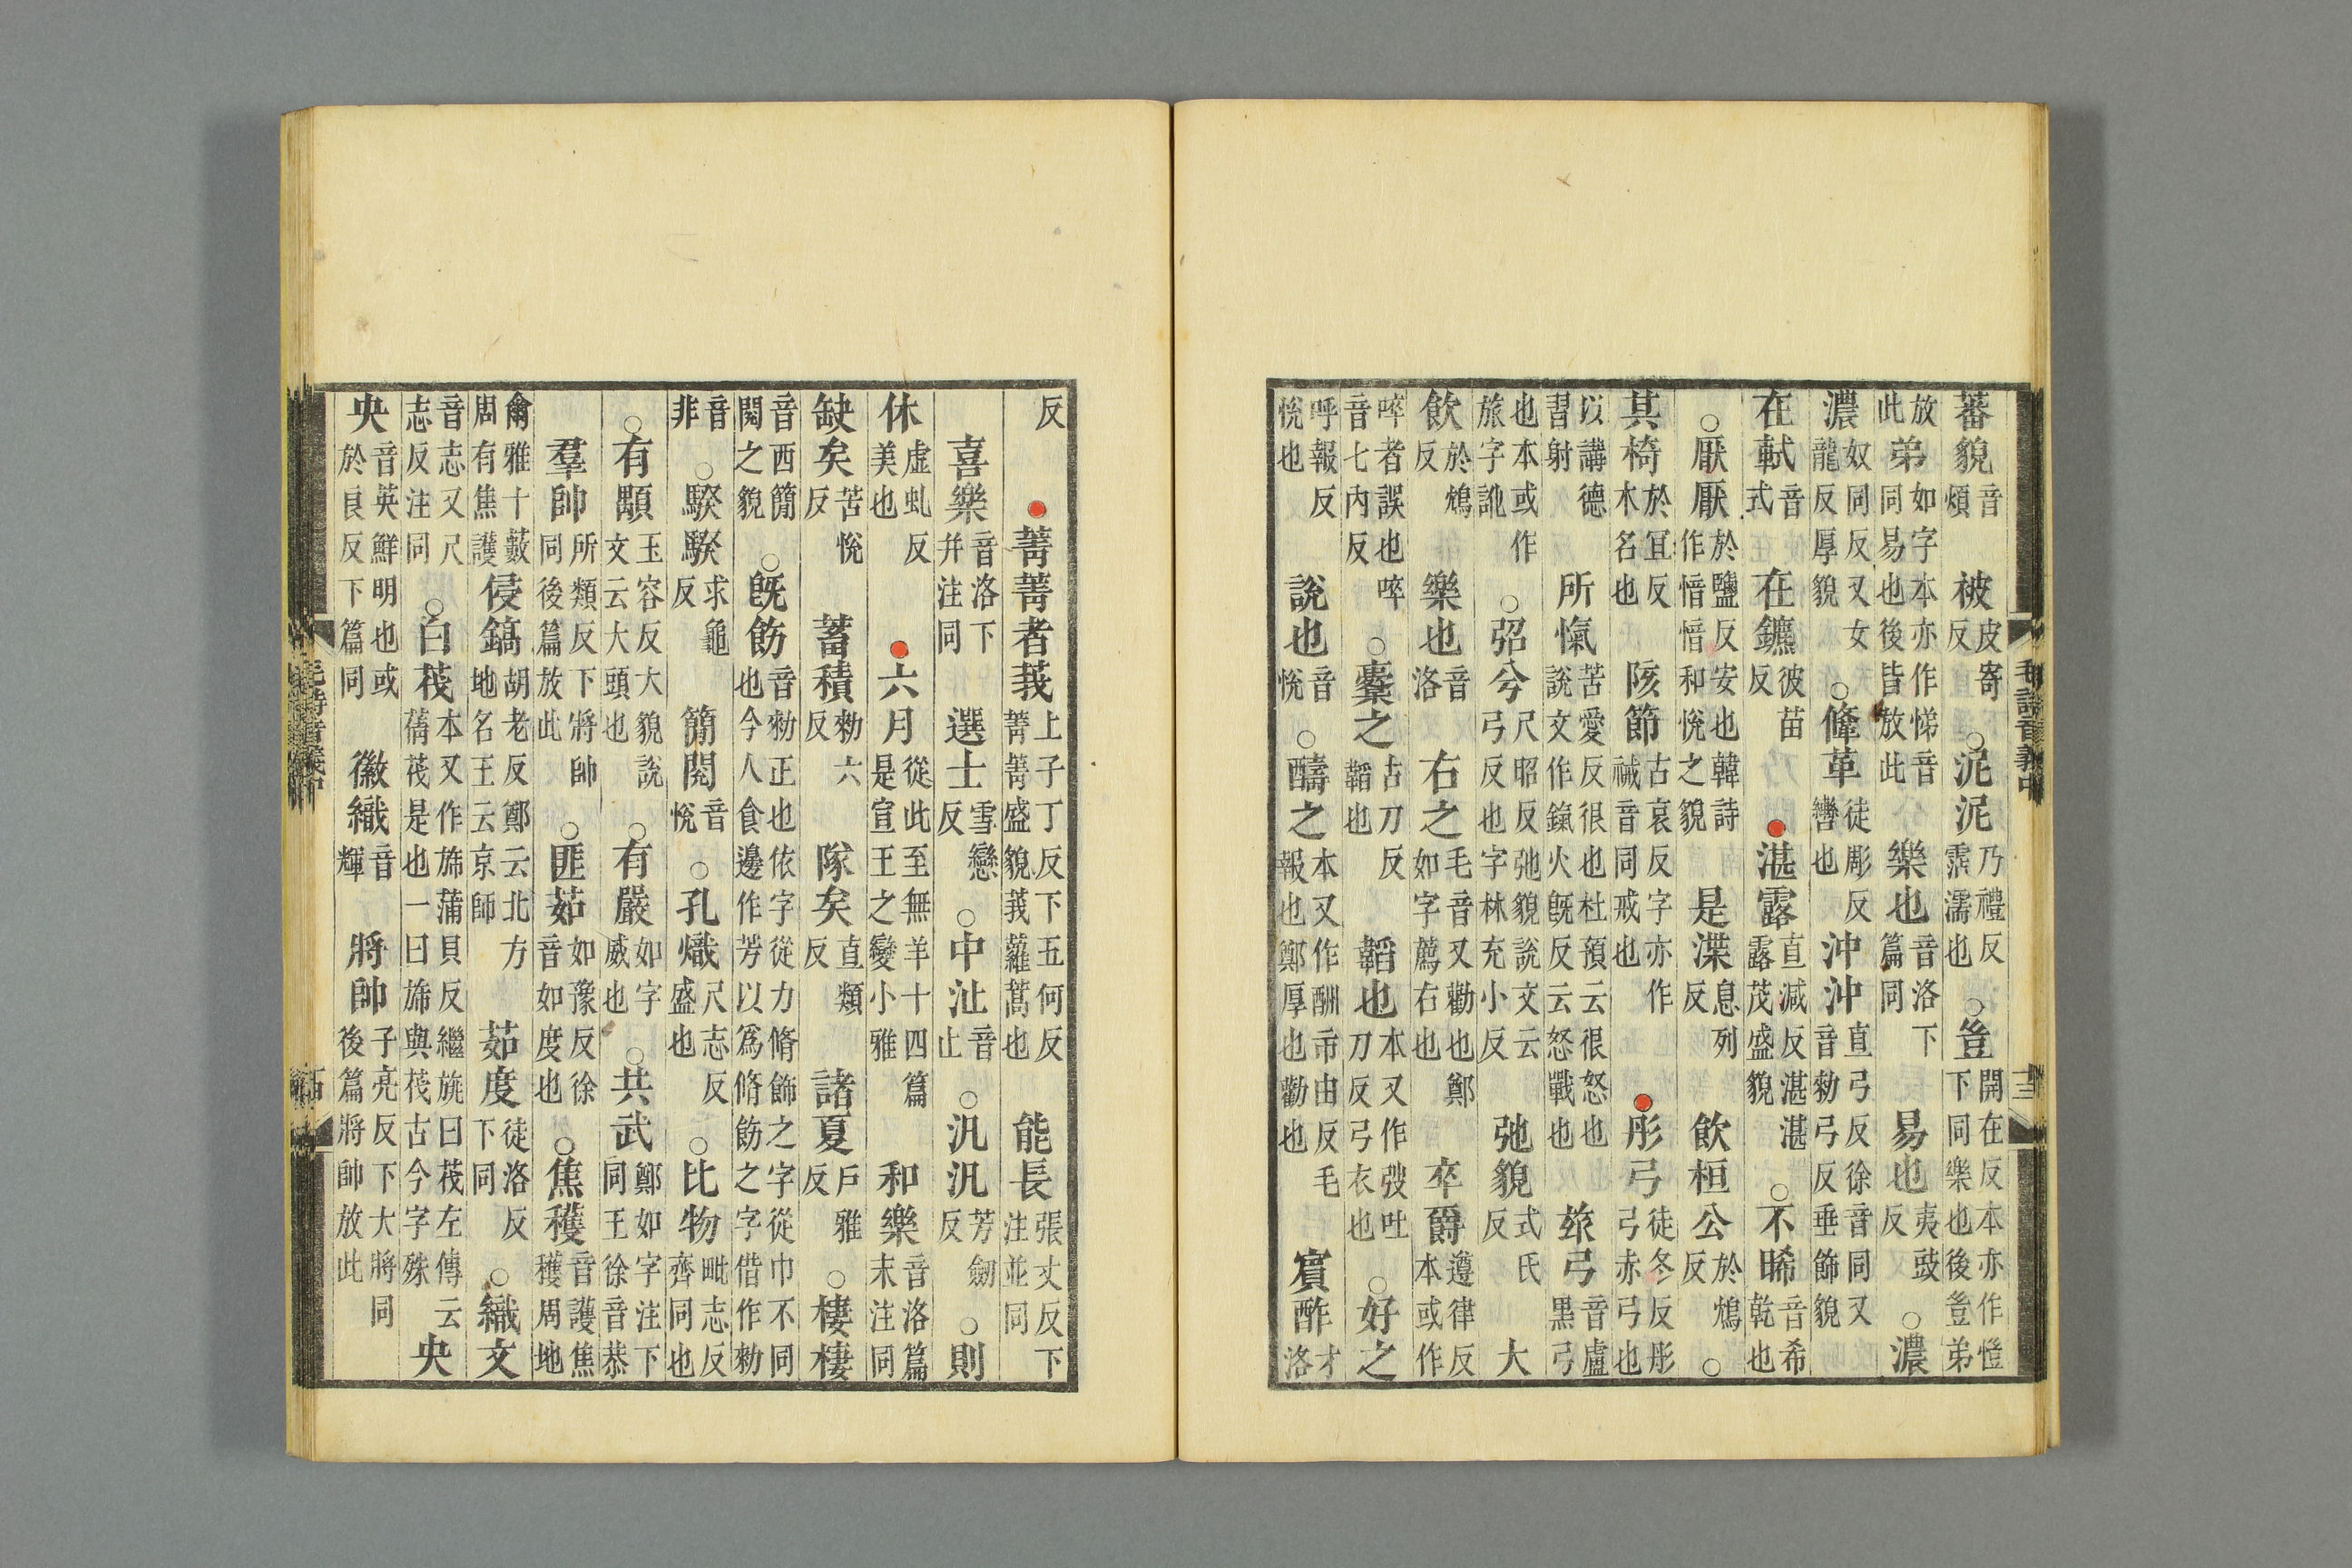 蕃貌音煩 被皮寄反 ○泥泥乃禮反霑濡也 ○豈開在反本亦作愷下同樂也後豈弟
放此弟如字本亦作悌音同易也後皆放此 樂也音洛下篇同 易也夷豉反 ○濃
濃奴同反又女龍反厚貌 ○鞗革徒彫反轡也 沖沖直弓反徐音同又音勑弓反垂飾貌
在軾音式 在鑣彼苗反 ●湛露直減反湛湛露茂盛貌 ○不晞音希乾也
○厭厭於鹽反安也韓詩作愔愔和悅之貌 是渫息列反 飲桓公於鴆反 ○
其椅於宜反木名也 陔節古哀反字亦作祴音同戒也 ●彤弓徒冬反彤弓赤弓也
以講德習射 所愾苦愛反很也杜預云很怒也說文作鎎火旣反云怒戰也 玈弓音盧黑弓
也本或作旅字訛 ○弨兮尺昭反弛貌說文云弓反也字林充小反 弛貌式氏反 大
飲於鴆反 樂也音洛 右之毛音又勸也鄭如字薦右也 卒爵遵律反本或作
啐者誤也啐音七內反 ○櫜之古刀反韜也 韜也本又作弢吐刀反弓衣也 ○好之
呼報反悅也 說也音悅 ○醻之本又作酬市由反毛報也鄭厚也勸也 賓酢才洛
毛詩音義中 十三
反
●菁菁者莪上子丁反下五何反菁菁盛貌莪蘿蒿也 能長張丈反下注並同
喜樂音洛下并注同 選士雪戀反 ○中沚音止 ○汎汎芳劒反 ○則
休虛虬反美也 ●六月從此至無羊十四篇是宣王之變小雅 和樂音洛篇末注同
缺矣苦悅反 蓄積勑六反 隊矣直類反 諸夏戶雅反 ○棲棲
音西簡閱之貌 ○旣飭音勑正也依字從力脩飾之字從巾不同也今人食邊作芳以爲脩飭之字借作勑
音非 ○騤騤求龜反 簡閱音悅 ○孔熾尺志反盛也 ○比物毗志反齊同也
○有顒玉容反大貌說文云大頭也 ○有嚴如字威也 ○共武鄭如字注下同王徐音恭
羣帥所類反下將帥同後篇放此 ○匪茹如豫反徐音如度也 ○焦穫音護焦穫周地
爾雅十藪周有焦護 侵鎬胡老反鄭云北方地名王云京師 茹度徒洛反下同 ○織文
音志又尺志反注同 ○白茷本又作旆蒲貝反繼旐曰茷左傳云蒨茷是也一曰旆與茷古今字殊 央
央音英鮮明也或於良反下篇同 徽織音輝 將帥子亮反下大將同後篇將帥放此
毛詩音義中